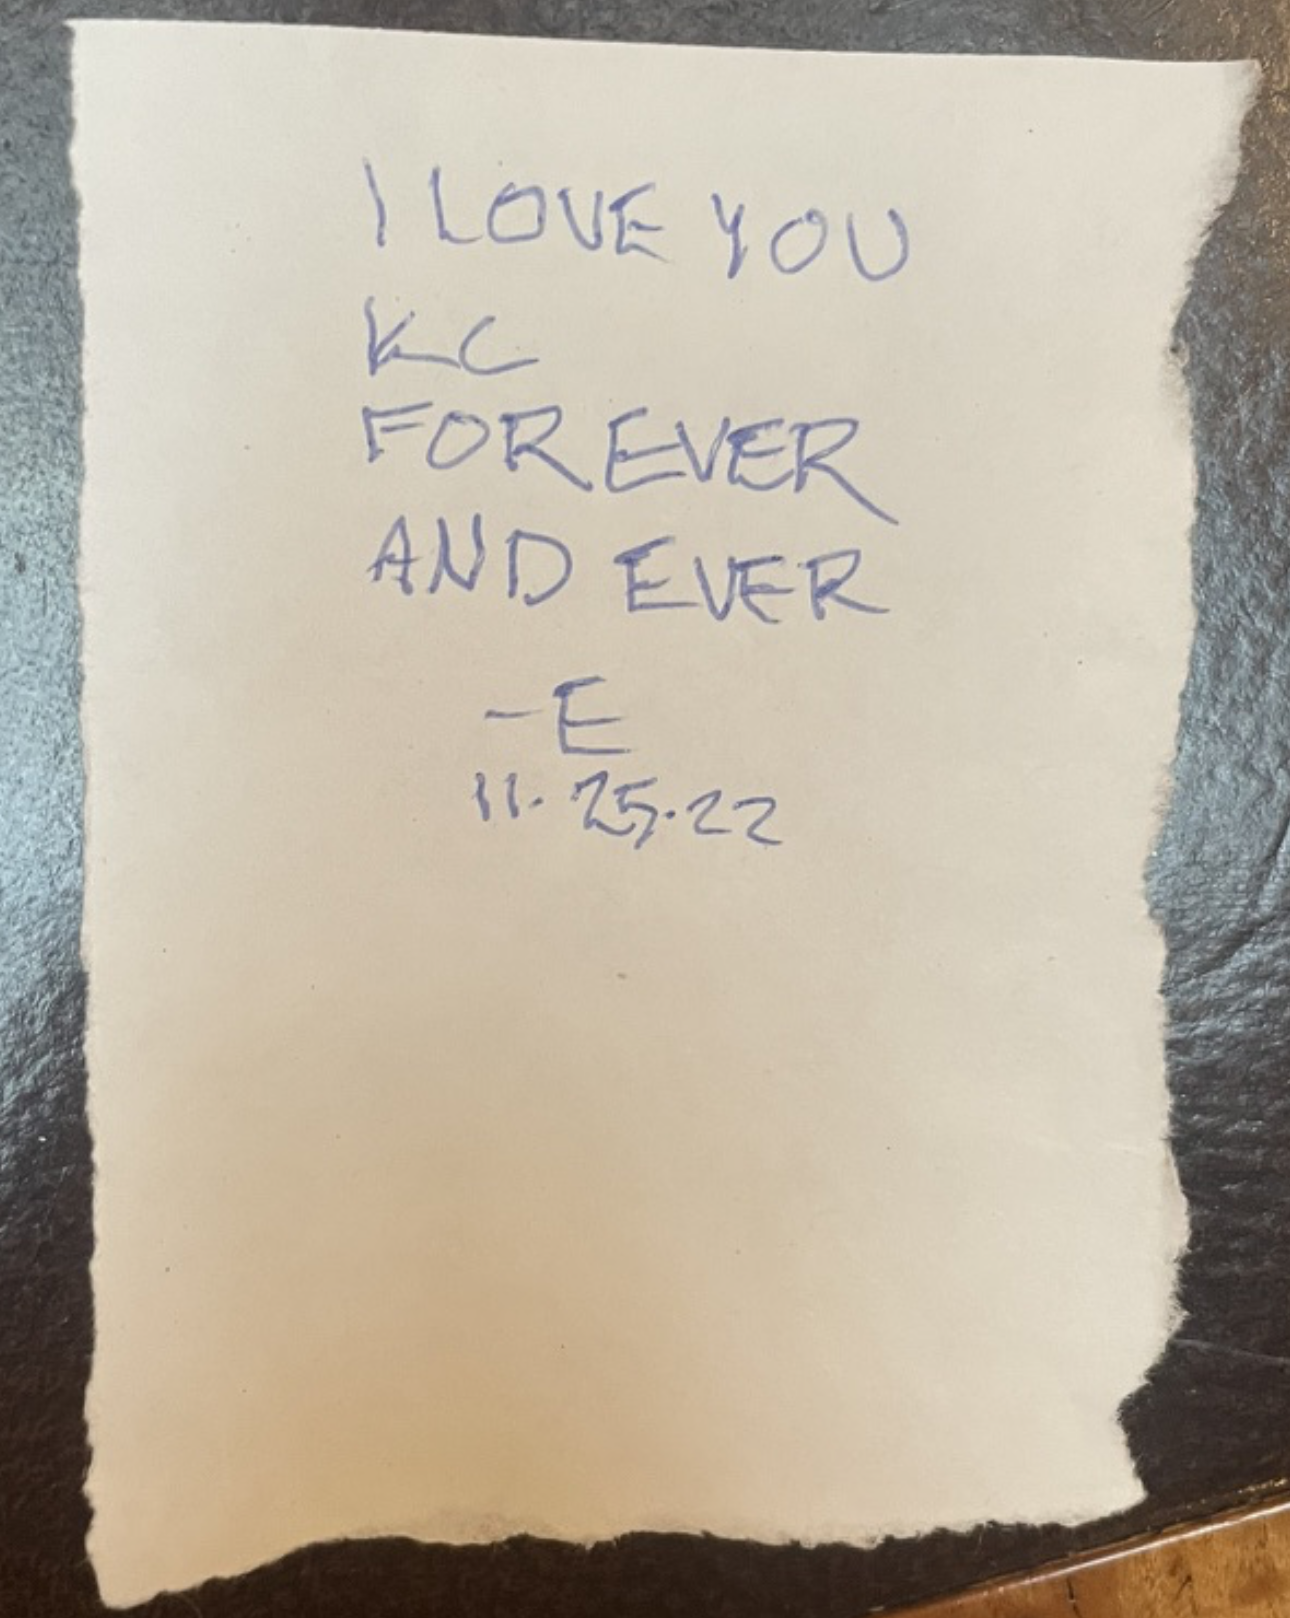 I LOVE YOU
KC
FOREVER
AND EVER
-E
11.25.22